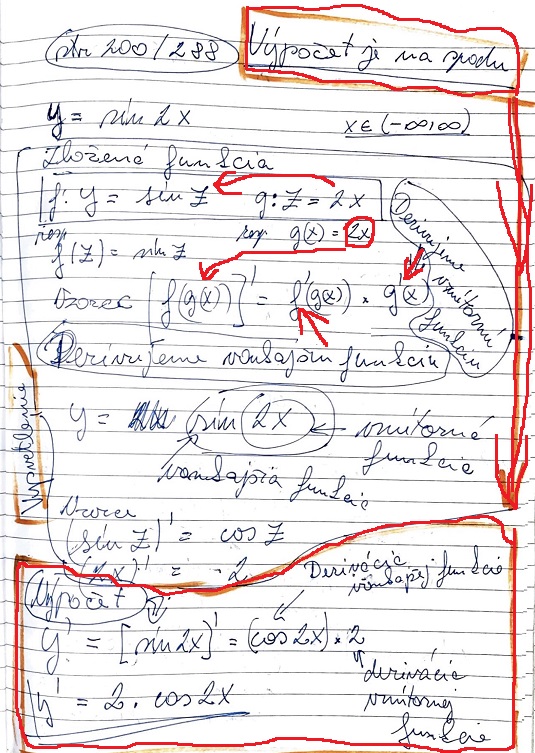 str 200/288
Výpočet je na spodu
y = sin 2x
x∈(-∞,∞)
Zložená funkcia
f: y = sin z g: z = 2x
resp f(z) = sin z resp g(x) = 2x
Vzorec [f(g(x))]' = f'(g(x)) × g'(x)
Derivujeme vnútornú funkciu
Derivujeme vonkajšiu funkciu
y = sin 2x ← vnútorná funkcia
vonkajšia funkcia
Vysvetlenie
Vzorce
(sin z)' = cos z
(2x)' = 2
Výpočet
Derivácia vonkajšej funkcie
y' = [sin 2x]' = (cos 2x) × 2
derivácia
vnútornej
funkcie
y' = 2 . cos 2x